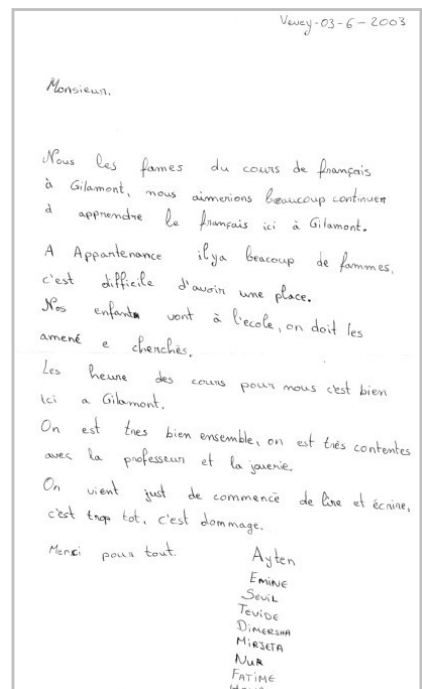 Vevey-03-6-2003
Monsieur.
Nous les fames du cours de français
à Gilamont, nous aimerions beaucoup continuer
à apprendre le français ici à Gilamont.
A Appartenance ilya beacoup de fammes,
c'est difficile d'avoir une place.
Nos enfants vont à l'ecole, on doit les
amené e cherchés.
Les heure des cours pour nous c'est bien
ici a Gilamont.
On est tres bien ensemble, on est très contentes
avec la professeur et la jouerie.
On vient just de commencé de lire et écrire,
c'est trop tot, c'est dommage.
Merci pour tout.
Ayten
EmiNE
Sevil
TeviDE
DimersHA
MiRJETA
NUR
FATIME